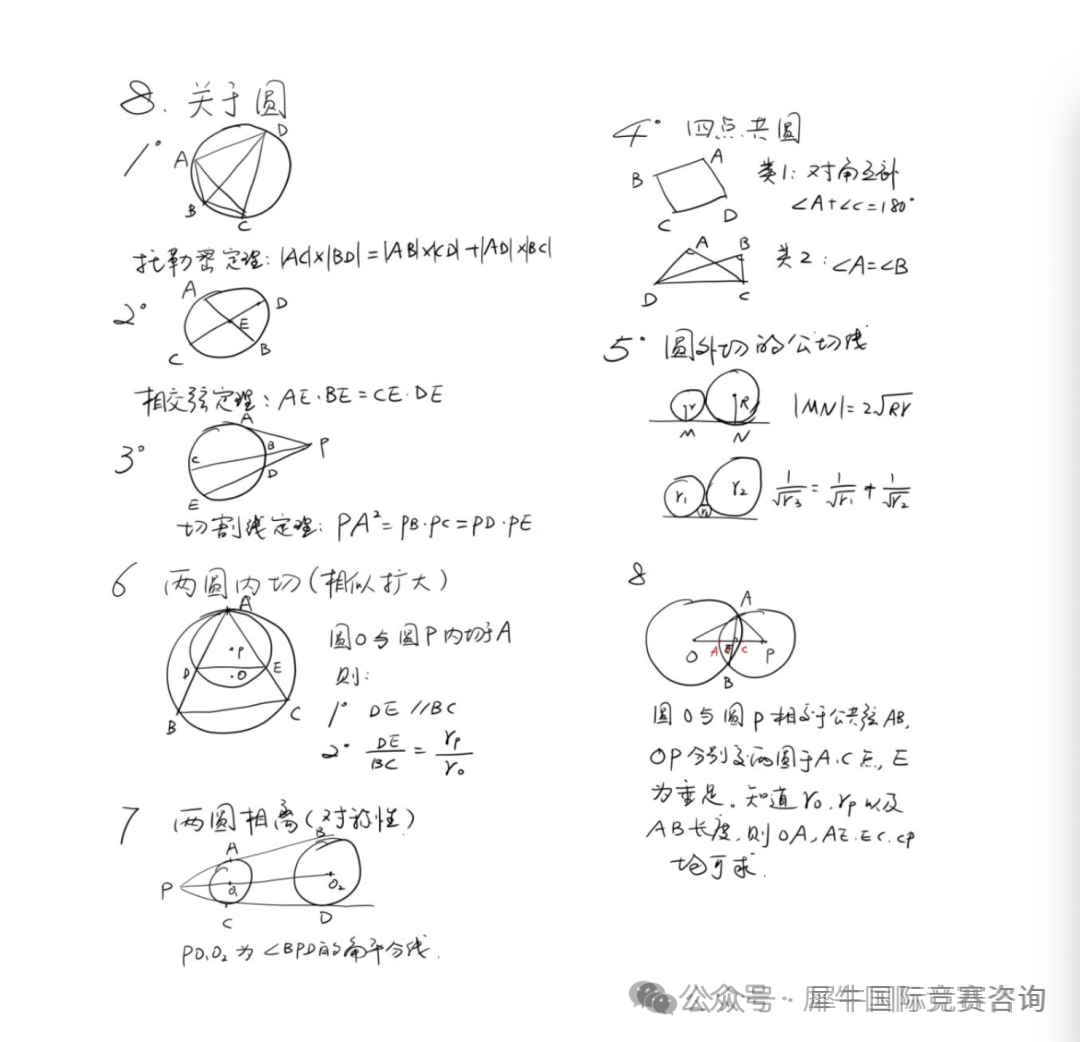 8. 关于圆
1°
A
D
B
C
托勒密定理: |AC|×|BD|=|AB|×|CD|+|AD|×|BC|
2°
A
D
E
C
B
相交弦定理: AE·BE=CE·DE
3°
A
B
P
C
D
E
切割线定理: PA²=PB·PC=PD·PE
4° 四点共圆
A
B
C
D
类1: 对角互补
∠A+∠C=180°
A
B
D
C
类2: ∠A=∠B
5° 圆外切的公切线
r
R
M
N
|MN|=2√Rr
r₁
r₂
1/√r₃ = 1/√r₁ + 1/√r₂
6 两圆内切(相似扩大)
A
P
D
E
O
B
C
圆O与圆P内切于A
则:
1° DE//BC
2° DE/BC = rP/rO
7 两圆相离(对称性)
A
B
P
O₁
O₂
C
D
PO₁O₂为∠BPD的角平分线.
8
A
O
A
E
C
P
B
圆O与圆P相交于公共弦AB,
OP分别交两圆于A.C点, E
为垂足。知道rO, rP以及
AB长度, 则OA, AE. EC. CP
均可求.
公众号·犀牛国际竞赛咨询